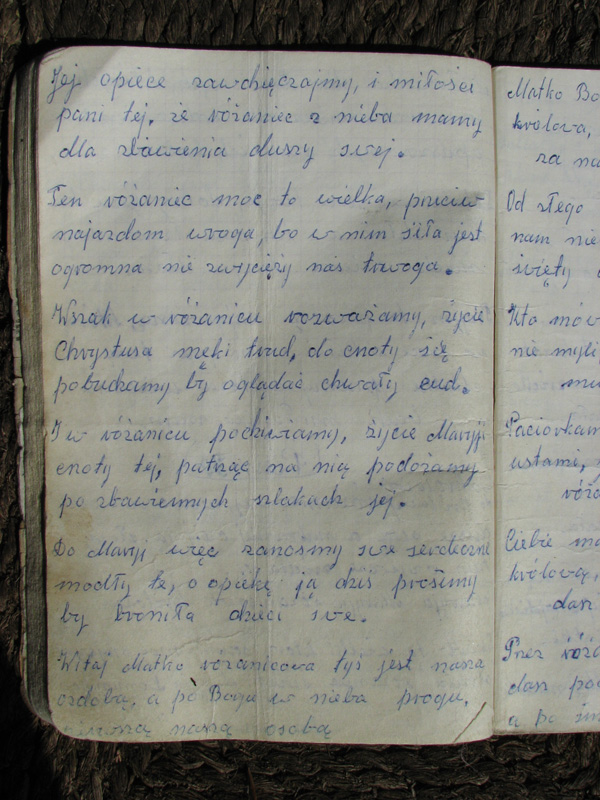 Jej opiece zawdzięczajmy, i miłości
pani tej, że różaniec z nieba mamy
dla zbawienia duszy swej.
Ten różaniec moc to wielka, przeciw
najazdom wroga, bo w nim siła jest
ogromna nie zwycięży nas trwoga.
Wszak w różańcu rozważamy, życie
Chrystusa męki trud, do cnoty się
pobudzamy by oglądać chwały cud.
I w różańcu podziwiamy, życie Maryji
cnoty tej, patrząc na nią podążamy
po zbawiennych szlakach jej.
Do Maryji więc zanosmy swe serdeczne
modły te, o opiekę ją dziś prosimy
by broniła dzieci swe.
Witaj Matko różańcowa tyś jest nasza
ozdobą, a po Bogu w nieba progu,
naszą osobą
Matko Bo
królowa,
za na
Od złego
nam nie
święty
Kto mów
nie myli
Paciorkam
ustami,
róża
Ciebie ma
królową,
dasz
Przez róża
dasz po
a po